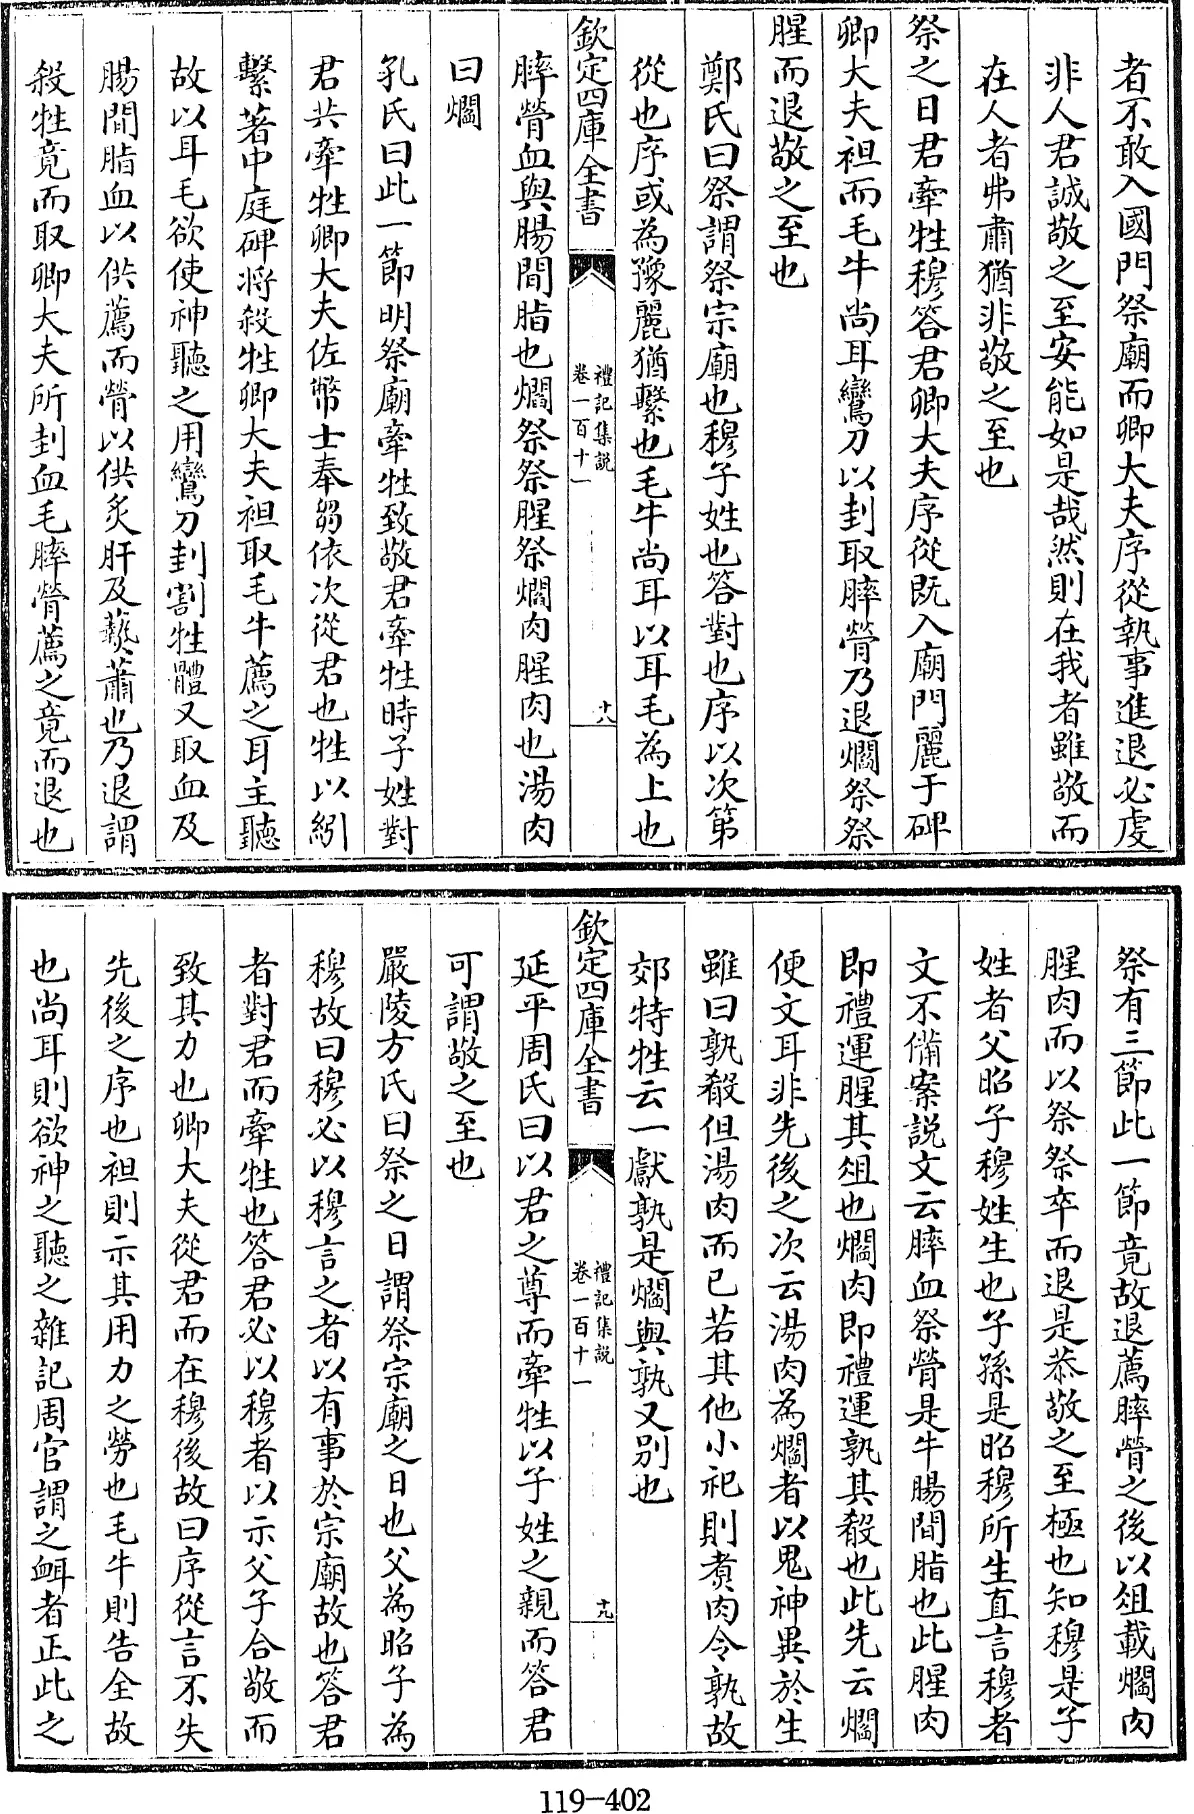 者不敢入國門祭廟而卿大夫序從執事進退必虔
非人君誠敬之至安能如是哉然則在我者雖敬而
在人者弗肅猶非敬之至也
祭之日君牽牲穆答君卿大夫序從既入廟門麗于碑
卿大夫袒而毛牛尚耳鸞刀以刲取膟膋乃退爓祭祭
腥而退敬之至也
鄭氏曰祭謂祭宗廟也穆子姓也答對也序以次第
從也序或為豫麗猶繫也毛牛尚耳以耳毛為上也
欽定四庫全書
禮記集說
卷一百十一
十八
膟膋血與腸間脂也爓祭祭腥祭爓肉腥肉也湯肉
曰爓
孔氏曰此一節明祭廟牽牲致敬君牽牲時子姓對
君共牽牲卿大夫佐幣士奉芻依次從君也牲以紖
繫著中庭碑將殺牲卿大夫袒取毛牛薦之耳主聽
故以耳毛欲使神聽之用鸞刀刲割牲體又取血及
腸間脂血以供薦而膋以供炙肝及爇蕭也乃退謂
殺牲竟而取卿大夫所刲血毛膟膋薦之竟而退也
祭有三節此一節竟故退薦膟膋之後以俎載爓肉
腥肉而以祭祭卒而退是恭敬之至極也知穆是子
姓者父昭子穆姓生也子孫是昭穆所生直言穆者
文不備案說文云膟血祭膋是牛腸間脂也此腥肉
即禮運腥其俎也爓肉即禮運孰其殽也此先云爓
便文耳非先後之次云湯肉為爓者以鬼神異於生
雖曰孰殽但湯肉而已若其他小祀則煑肉令孰故
郊特牲云一獻孰是爓與孰又別也
欽定四庫全書
禮記集說
卷一百十一
十九
延平周氏曰以君之尊而牽牲以子姓之親而答君
可謂敬之至也
嚴陵方氏曰祭之日謂祭宗廟之日也父為昭子為
穆故曰穆必以穆言之者以有事於宗廟故也答君
者對君而牽牲也答君必以穆者以示父子合敬而
致其力也卿大夫從君而在穆後故曰序從言不失
先後之序也袒則示其用力之勞也毛牛則告全故
也尚耳則欲神之聽之雜記周官謂之衈者正此之
119-402